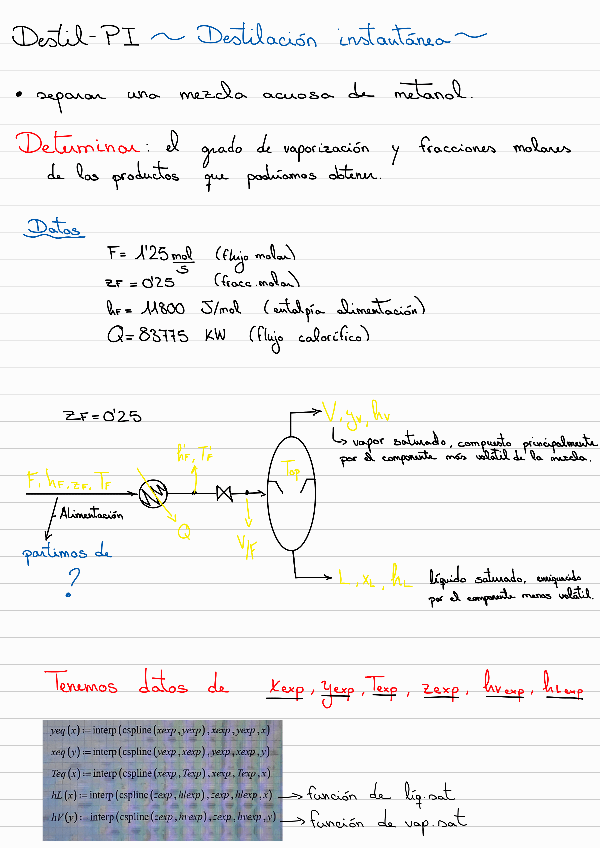 Destil-PI ~ Destilación instantánea ~
• separar una mezcla acuosa de metanol.
Determinar: el grado de vaporización y fracciones molares
de los productos que podríamos obtener.
Datos
F = 1'25 mol/s (flujo molar)
zF = 0'25 (fracc. molar)
hF = 11800 J/mol (entalpía alimentación)
Q = 83775 KW (flujo calorífico)
zF = 0'25
V, yv, hv
↳ vapor saturado, compuesto principalmente
por el componente más volátil de la mezcla.
h'F, T'F
Top
F, hF, zF, TF
Alimentación
Q
V/F
partimos de
?
L, xL, hL
líquido saturado, enriquecido
por el componente menos volátil.
Tenemos datos de xexp, yexp, Texp, zexp, hvexp, hLexp
yeq(x):=interp(cspline(xexp,yexp),xexp,yexp,x)
xeq(y):=interp(cspline(yexp,xexp),yexp,xexp,y)
Teq(x):=interp(cspline(xexp,Texp),xexp,Texp,x)
hL(x):=interp(cspline(zexp,hlexp),zexp,hlexp,x) → función de líq.sat
hV(y):=interp(cspline(zexp,hvexp),zexp,hvexp,y) → función de vap.sat